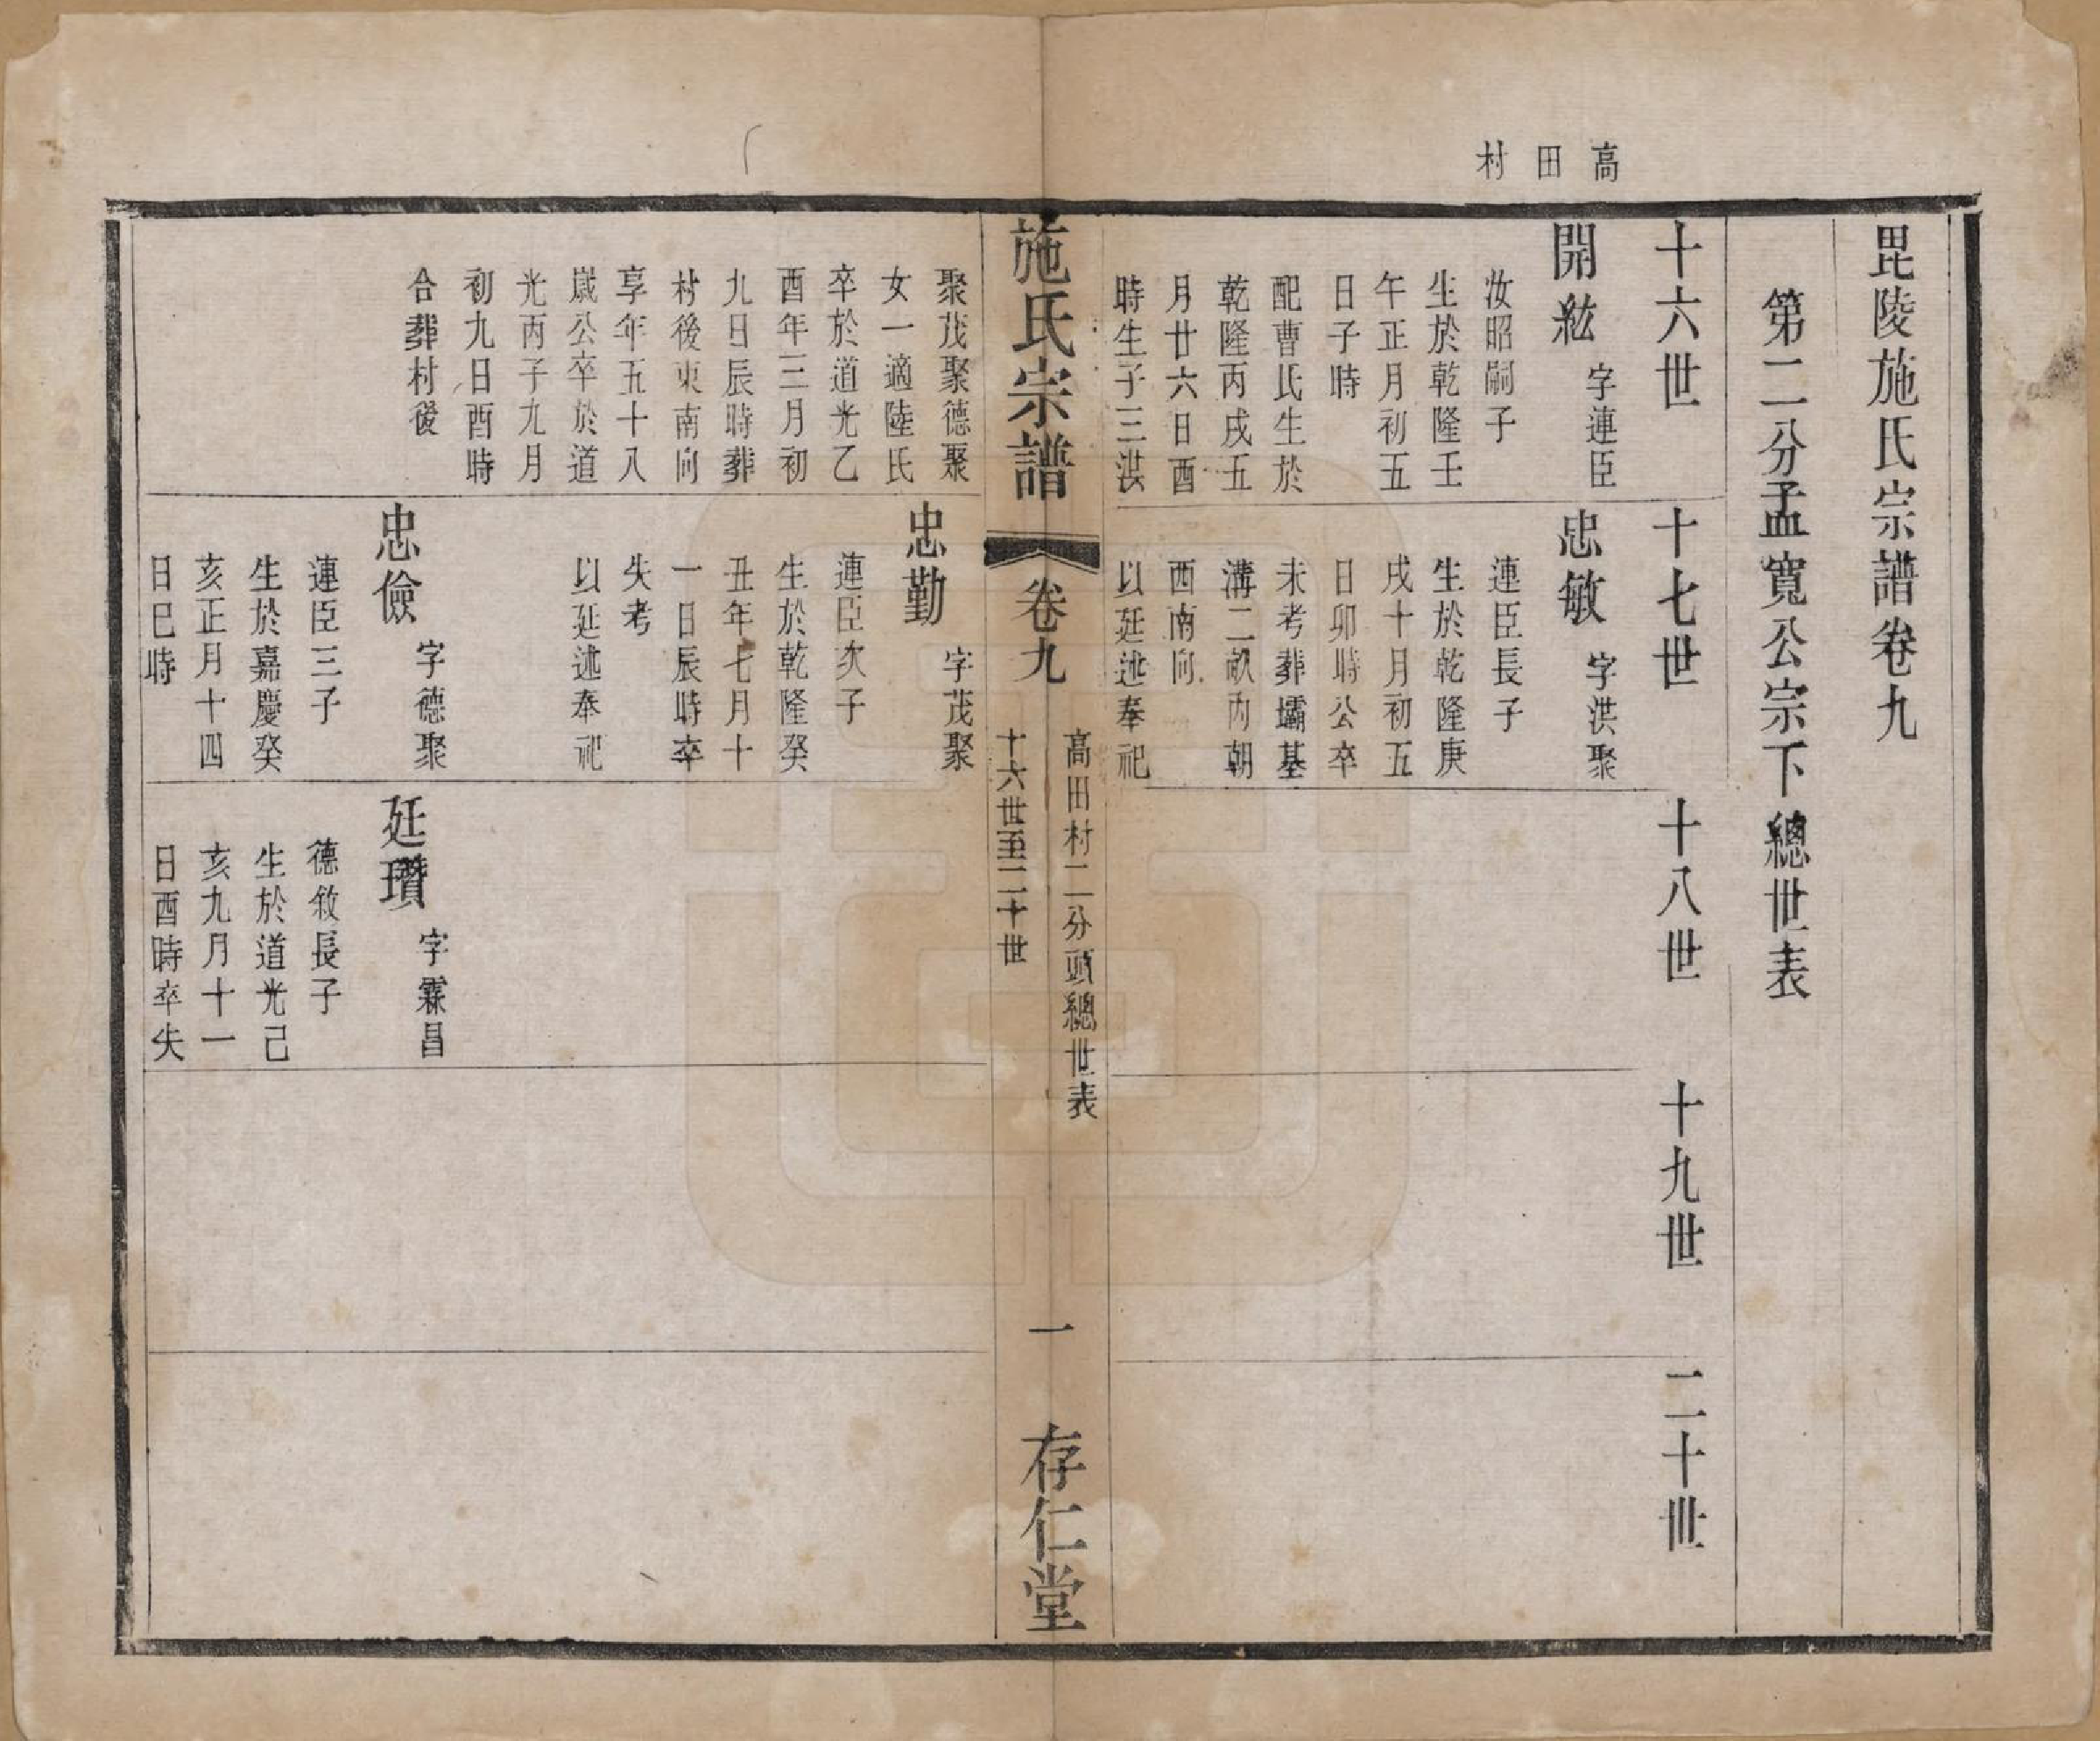 高田村
毘陵施氏宗譜卷九
第二分孟寬公宗下總世表
十六世
十七世
十八世
十九世
二十世
開紘
字連臣
汝昭嗣子
生於乾隆壬
午正月初五
日子時
配曹氏生於
乾隆丙戌五
月廿六日酉
時生子三洪
忠敏
字洪聚
連臣長子
生於乾隆庚
戌十月初五
日卯時公卒
未考葬壩基
溝二畝內朝
西南向
以延述奉祀
施氏宗譜
卷九
高田村二分頭總世表
十六世至二十世
一
存仁堂
聚茂聚德聚
女一適陸氏
卒於道光乙
酉年三月初
九日辰時葬
村後東南向
享年五十八
歲公卒於道
光丙子九月
初九日酉時
合葬村後
忠勤
字茂聚
連臣次子
生於乾隆癸
丑年七月十
一日辰時卒
失考
以延述奉祀
忠儉
字德聚
連臣三子
生於嘉慶癸
亥正月十四
日巳時
延瓚
字霖昌
德敘長子
生於道光己
亥九月十一
日酉時卒失